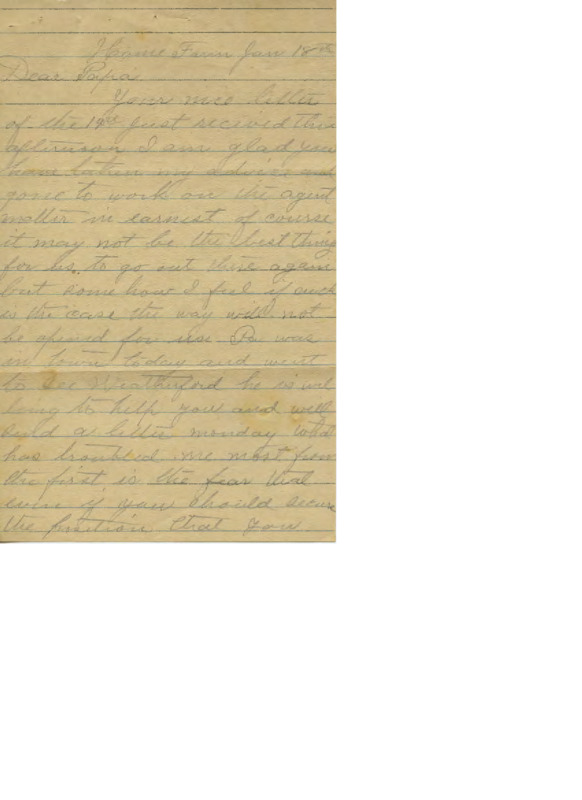 Home Farm Jan 18th
Dear Papa
Your nice letter
of the 14th just recived this
afternoon I am glad you
have taken my advice and
gone to work on the agent
matter in earnest of course
it may not be the best thing
for us to go out there again
but some how I feel if such
is the case the way will not
be opened for us Pa was
in town today and went
to see Weatherford he is wil
ling to help you and will
send a letter monday What
has troubled me most from
the first is the fear that
even if you should secure
the position that you